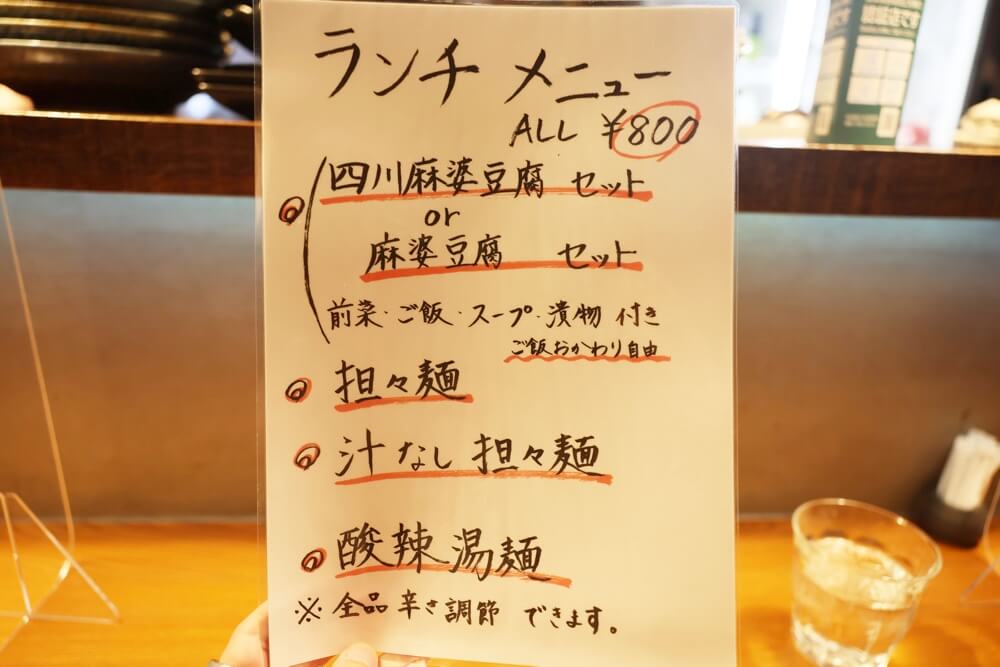 ランチ メニュー
ALL ¥800
◎ 四川麻婆豆腐 セット
or
麻婆豆腐 セット
前菜・ご飯・スープ・漬物 付き
ご飯おかわり自由
◎ 担々麺
◎ 汁なし 担々麺
◎ 酸辣湯麺
※ 全品 辛さ調節 できます。